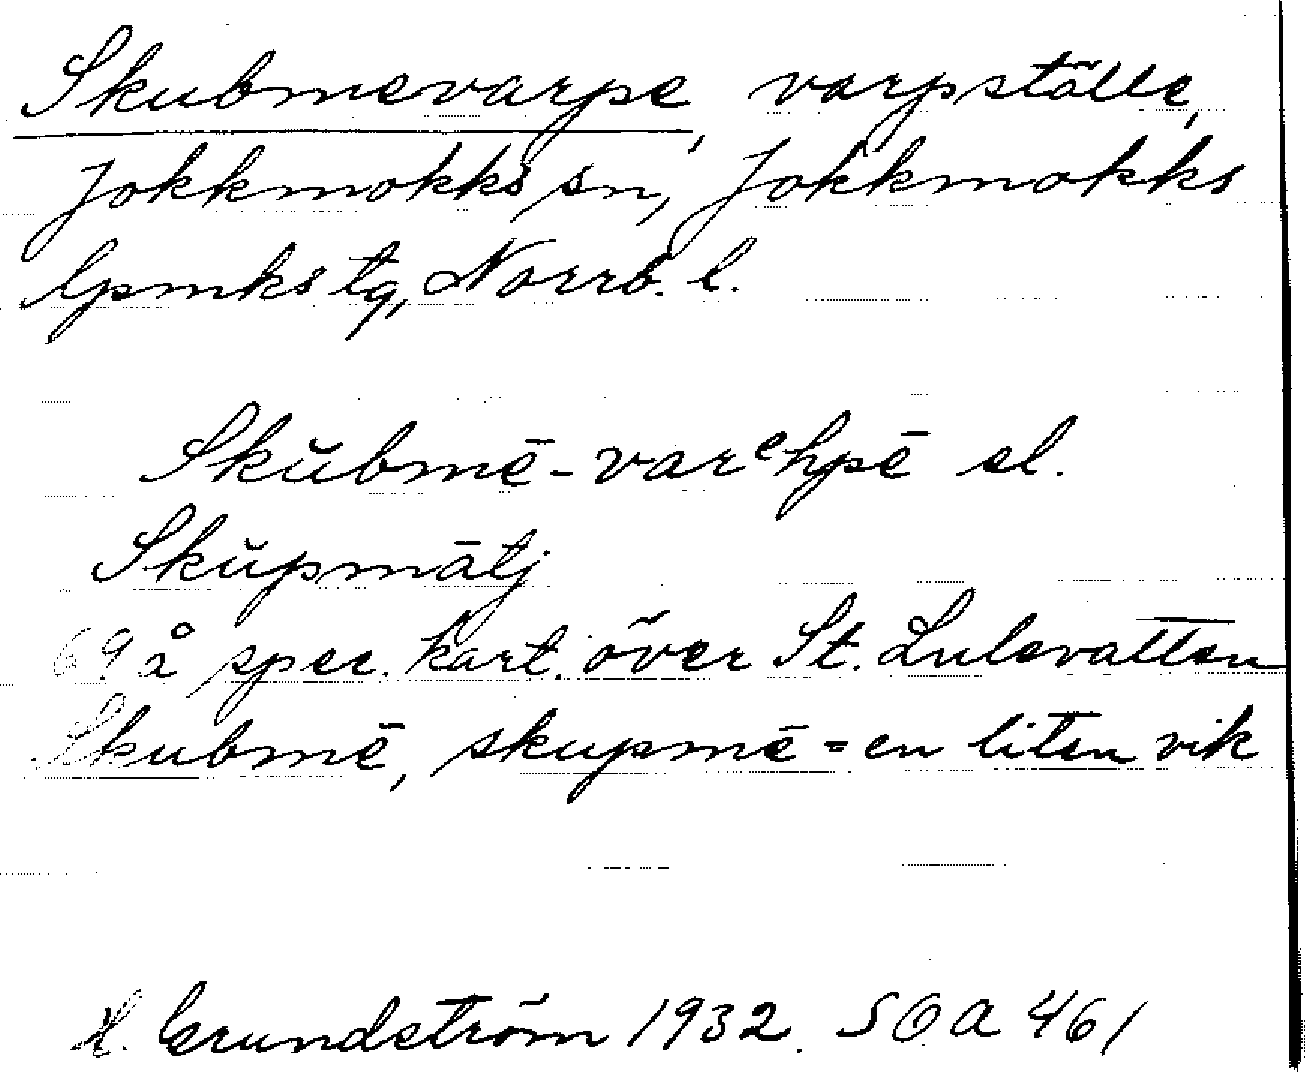 Skubmevarpe, varpställe,
Jokkmokks sn, Jokkmokks
lpmks tg, Norrb. l.
Skŭbmē-varᵉhpē el.
Skŭpmātj
69 å spec. kart. över St. Lulevatten
Skubmē, skupmē = en liten vik
H. Grundström 1932. SOA 461